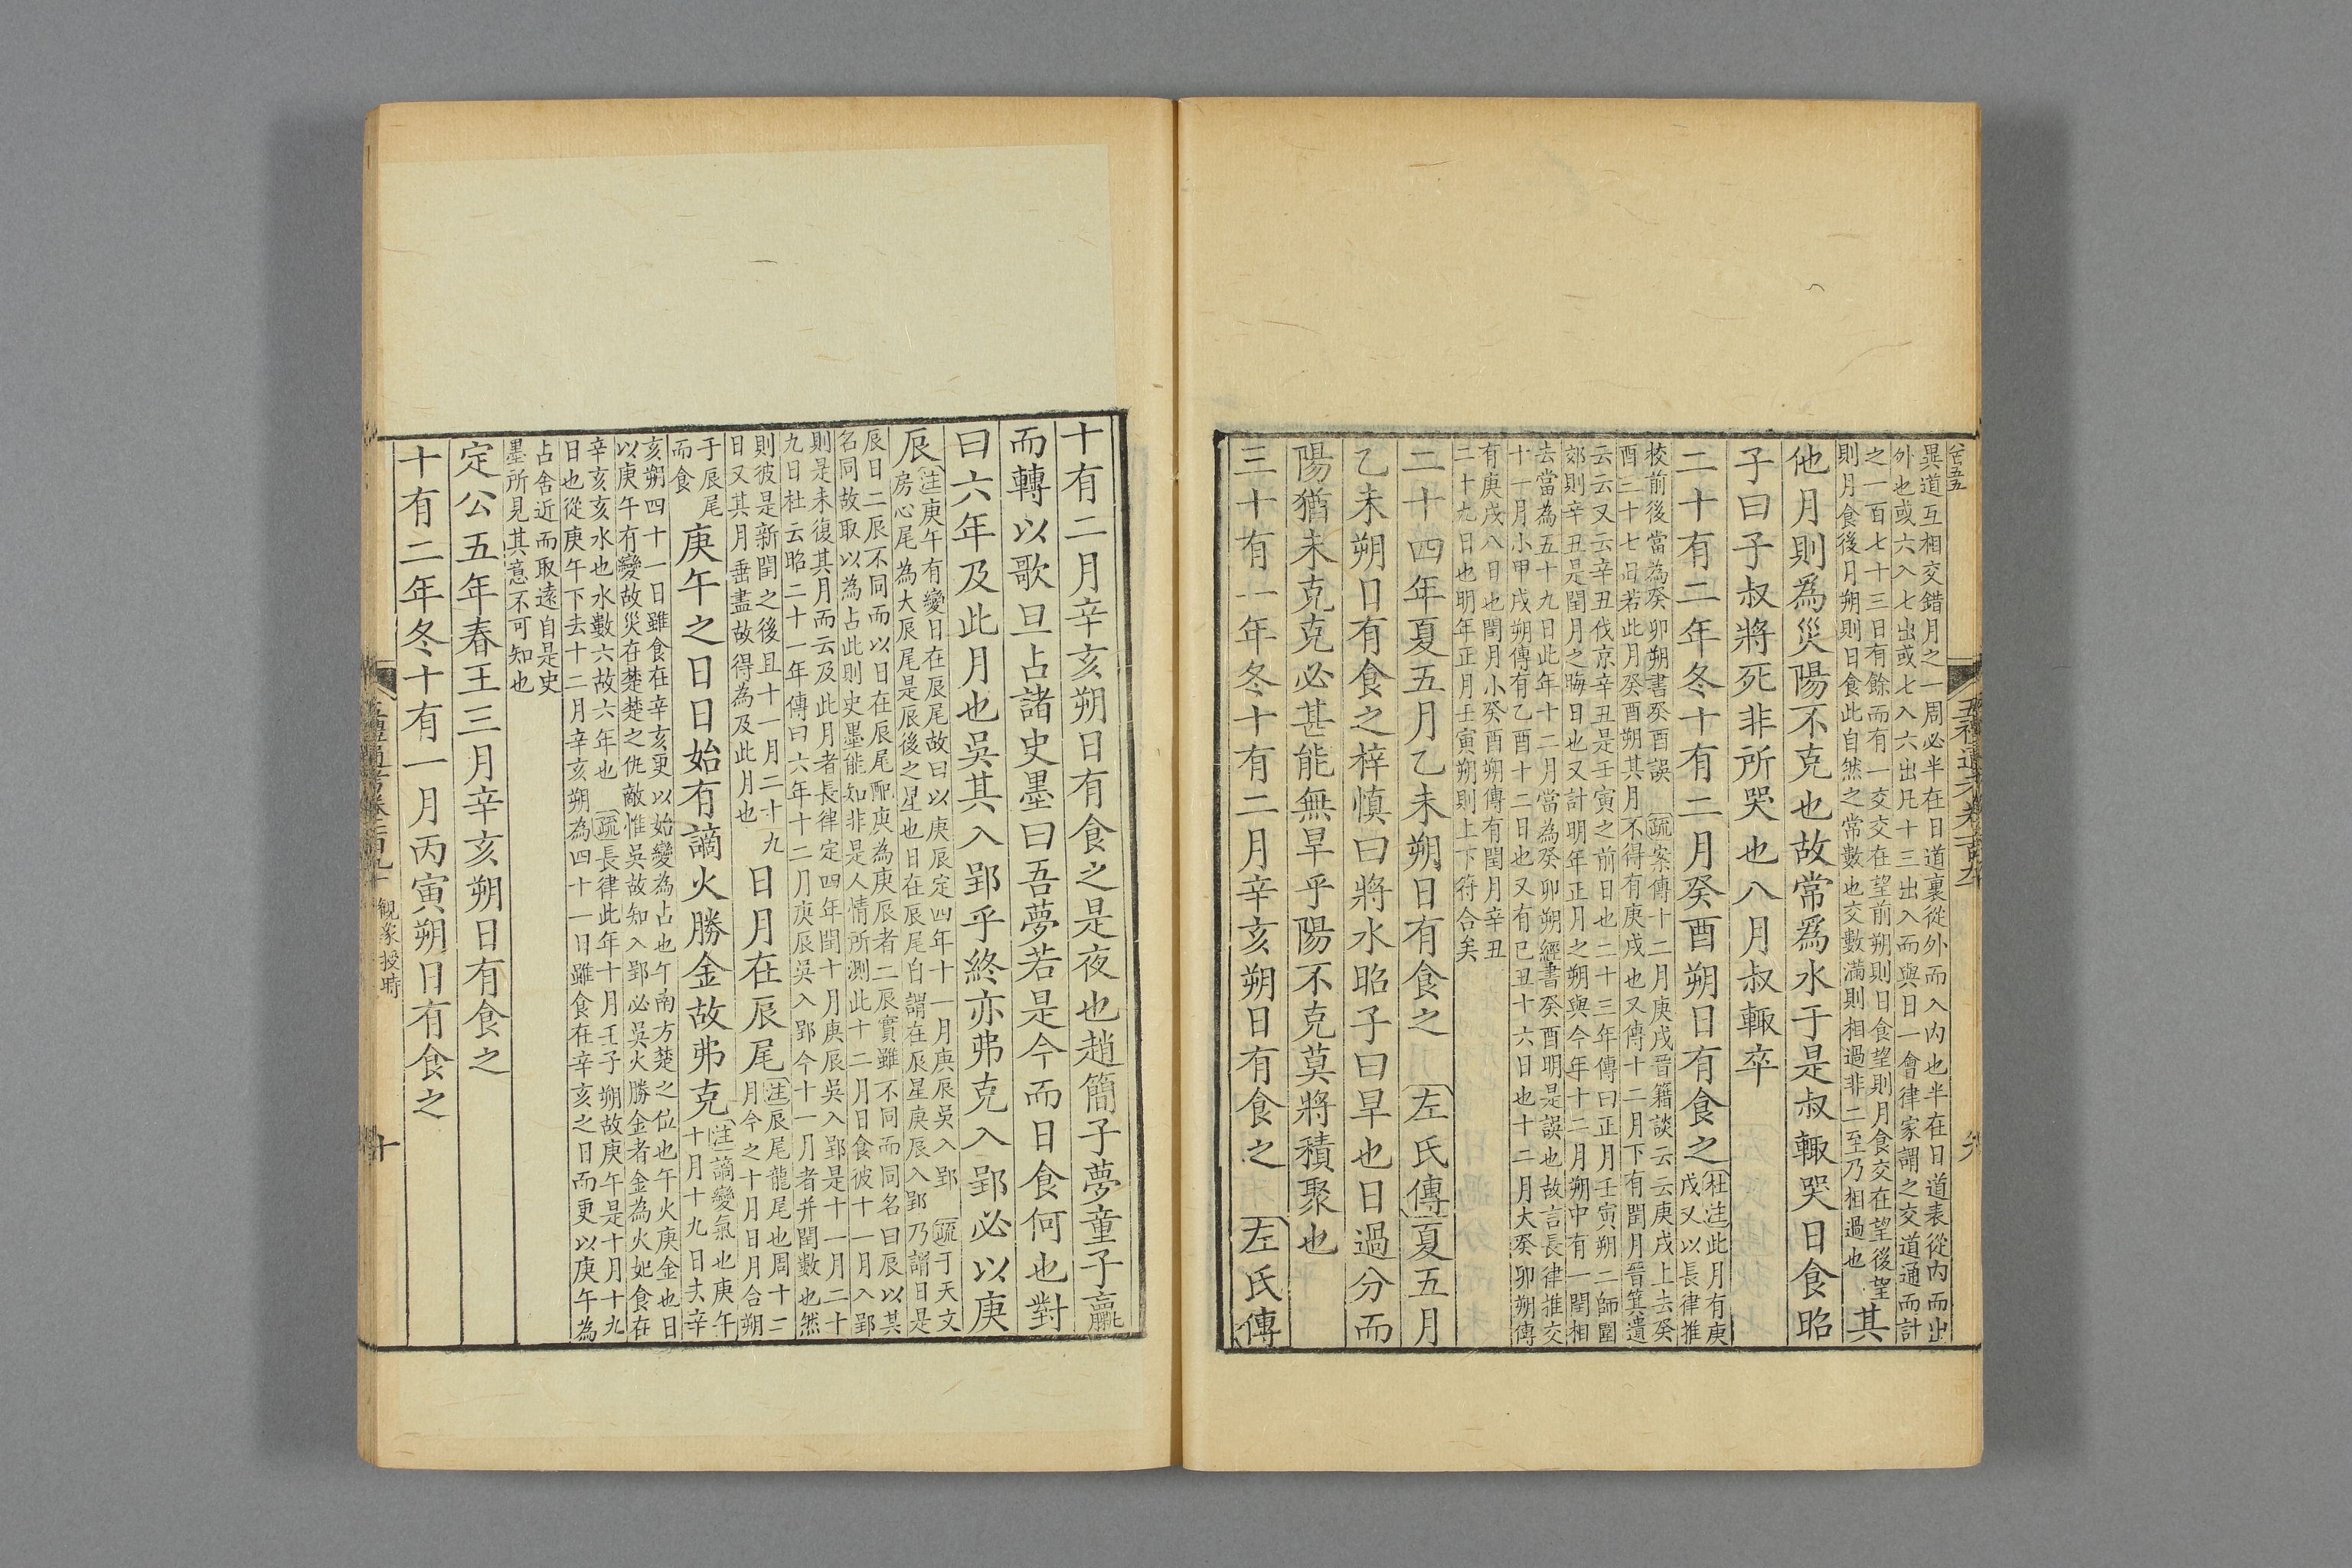 異道互相交錯月之一周必半在日道裏從外而入內也半在日道表從內而出
外也或六入七出或七入六出凡十三出入而與日一會律家謂之交道通而計
之一百七十三日有餘而有一交交在望前朔則日食望則月食交在望後望
則月食後月朔則日食此自然之常數也交數滿則相過非二至乃相過也其
他月則爲災陽不克也故常爲水于是叔輙哭日食昭
子曰子叔將死非所哭也八月叔輙卒
二十有二年冬十有二月癸酉朔日有食之杜注此月有庚
戌又以長律推
校前後當為癸卯朔書癸酉誤 疏案傳十二月庚戌晉籍談云云庚戌上去癸
酉三十七日若此月癸酉朔其月不得有庚戌也又傳十二月下有閏月晉箕遺
云云又云辛丑伐京辛丑是壬寅之前日也二十三年傳曰正月壬寅朔二師圍
郊則辛丑是閏月之晦日也又計明年正月之朔與今年十二月朔中有一閏相
去當為五十九日此年十二月當為癸卯朔經書癸酉明是誤也故言長律推交
十一月小甲戌朔傳有乙酉十二日也又有己丑十六日也十二月大癸卯朔傳
有庚戌八日也閏月小癸酉朔傳有閏月辛丑
二十九日也明年正月壬寅朔則上下符合矣
二十四年夏五月乙未朔日有食之 左氏傳夏五月
乙未朔日有食之梓慎曰將水昭子曰旱也日過分而
陽猶未克克必甚能無旱乎陽不克莫將積聚也
三十有一年冬十有二月辛亥朔日有食之 左氏傳
十有二月辛亥朔日有食之是夜也趙簡子夢童子臝
而轉以歌旦占諸史墨曰吾夢若是今而日食何也對
曰六年及此月也吳其入郢乎終亦弗克入郢必以庚
辰注庚午有變日在辰尾故曰以庚辰定四年十一月庚辰吳入郢 疏于天文
房心尾為大辰尾是辰後之星也日在辰尾自謂在辰星庚辰入郢乃謂日是
辰日二辰不同而以日在辰尾配庚為庚辰者二辰實雖不同而同名曰辰以其
名同故取以為占此則史墨能知非是人情所測此十二月日食彼十一月入郢
則是未復其月而云及此月者長律定四年閏十月庚辰吳入郢是十一月二十
九日杜云昭二十一年傳曰六年十二月庚辰吳入郢今十一月者并閏數也然
則彼是新閏之後且十一月二十九
日又其月垂盡故得為及此月也日月在辰尾注辰尾龍尾也周十二
月今之十月日月合朔
于辰尾
而食庚午之日日始有謫火勝金故弗克注謫變氣也庚午
十月十九日去辛
亥朔四十一日雖食在辛亥更以始變為占也午南方楚之位也午火庚金也日
以庚午有變故災在楚楚之仇敵惟吳故知入郢必吳火勝金者金為火妃食在
辛亥亥水也水數六故六年也 疏長律此年十月壬子朔故庚午是十月十九
日也從庚午下去十二月辛亥朔為四十一日雖食在辛亥之日而更以庚午為
占舍近而取遠自是史
墨所見其意不可知也
定公五年春王三月辛亥朔日有食之
十有二年冬十有一月丙寅朔日有食之
觀象授時
十